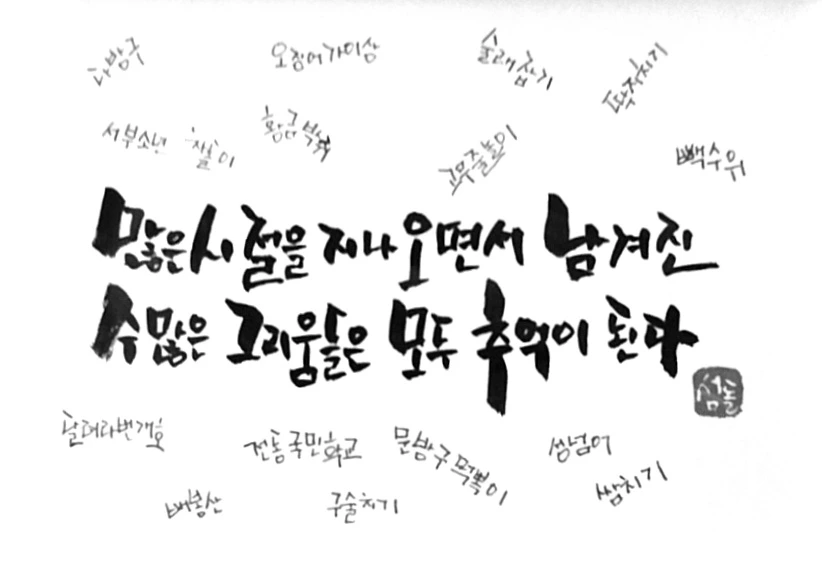 다방구
오징어가이상
술래잡기
딱지치기
서부소년 차돌이
황금박쥐
고무줄놀이
빽수위
많은 시절을 지나오면서 남겨진
수많은 그리움들은 모두 추억이 된다
섬돌
달려라번개호
전통국민학교
문방구떡볶이
쌍넘어
배봉산
구술치기
쌈치기